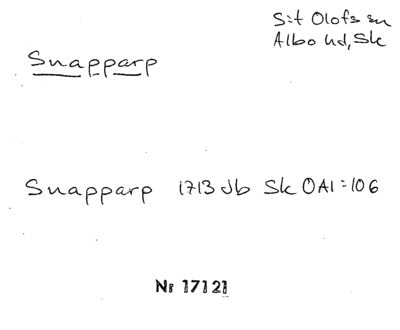 S:t Olofs sn
Albo hd, Sk
Snapparp
Snapparp 1713 Jb Sk OAI:106
Nr 17121